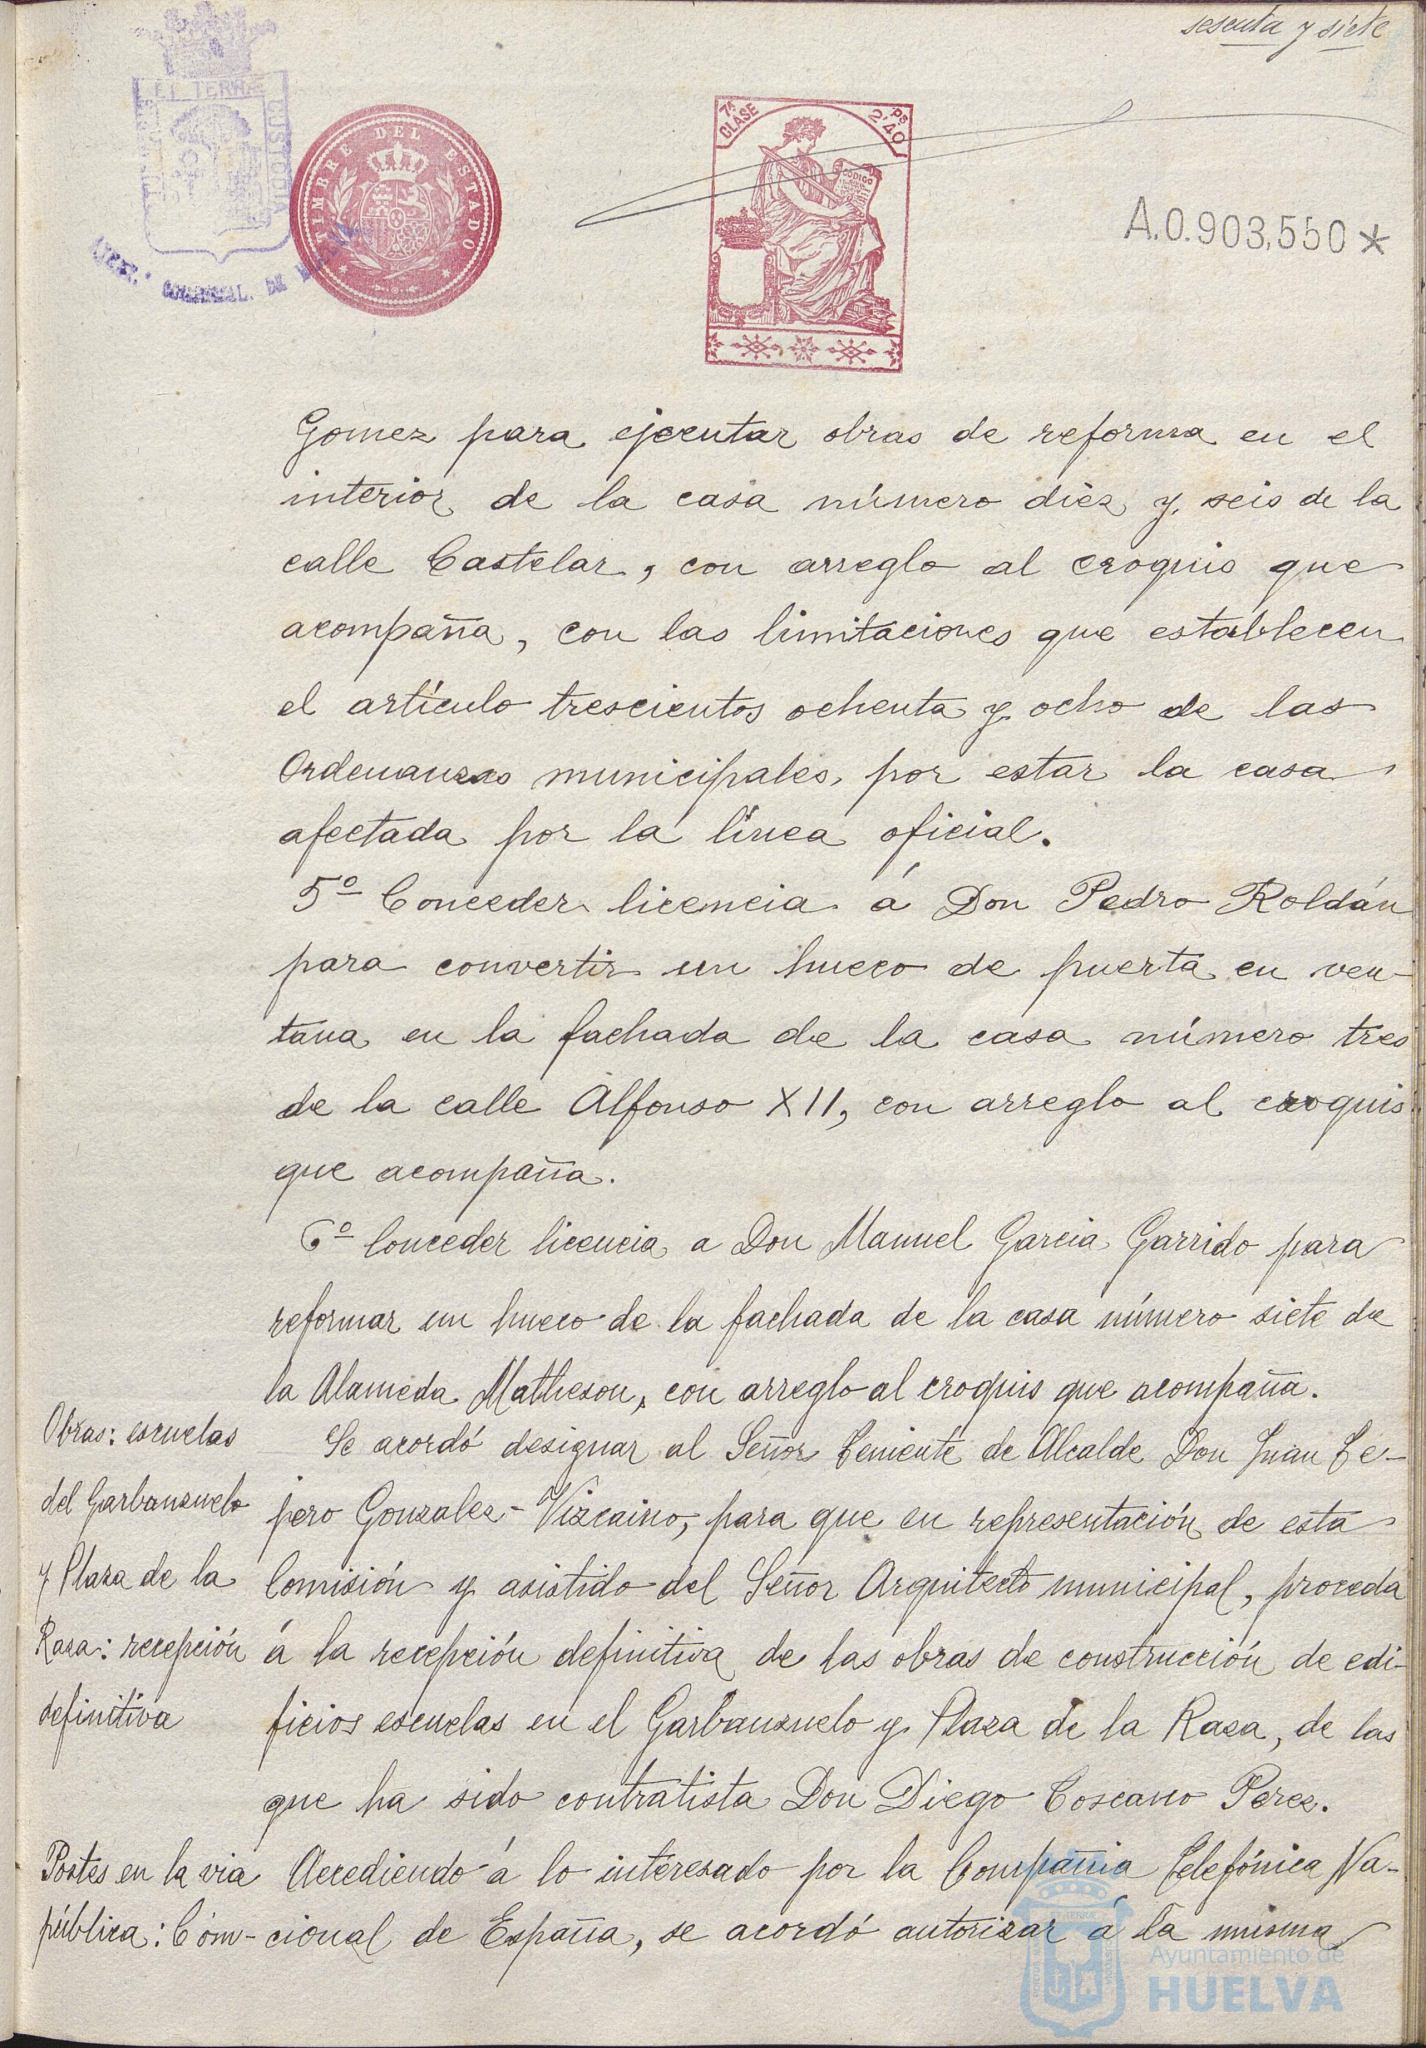 sesenta y siete
ET TERRÆ
CUSTODIA
TIMBRE DEL ESTADO
7ª CLASE
Pˢ 2'40
CODIGO
A.0.903,550*
Gomez para ejecutar obras de reforma en el
interior de la casa número diez y seis de la
calle Castelar, con arreglo al croquis que
acompaña, con las limitaciones que establecen
el artículo trescientos ochenta y ocho de las
Ordenanzas municipales, por estar la casa
afectada por la línea oficial.
5º Conceder licencia á Don Pedro Roldán
para convertir un hueco de puerta en ven-
tana en la fachada de la casa número tres
de la calle Alfonso XII, con arreglo al croquis
que acompaña.
6º Conceder licencia a Don Manuel Garcia Garrido para
reformar un hueco de la fachada de la casa número siete de
la Alameda Matheson, con arreglo al croquis que acompaña.
Obras: escuelas
del Garbanzuelo
y Plaza de la
Raza: recepción
definitiva
Se acordó designar al Señor Teniente de Alcalde Don Juan Te-
jero Gonzalez-Vizcaino, para que en representación de esta
Comisión y asistido del Señor Arquitecto municipal, proceda
á la recepción definitiva de las obras de construcción de edi-
ficios escuelas en el Garbanzuelo y Plaza de la Raza, de las
que ha sido contratista Don Diego Toscano Perez.
Postes en la via
pública: Com-
Accediendo á lo interesado por la Compañia Telefónica Na-
cional de España, se acordó autorizar á la misma
Ayuntamiento de
HUELVA